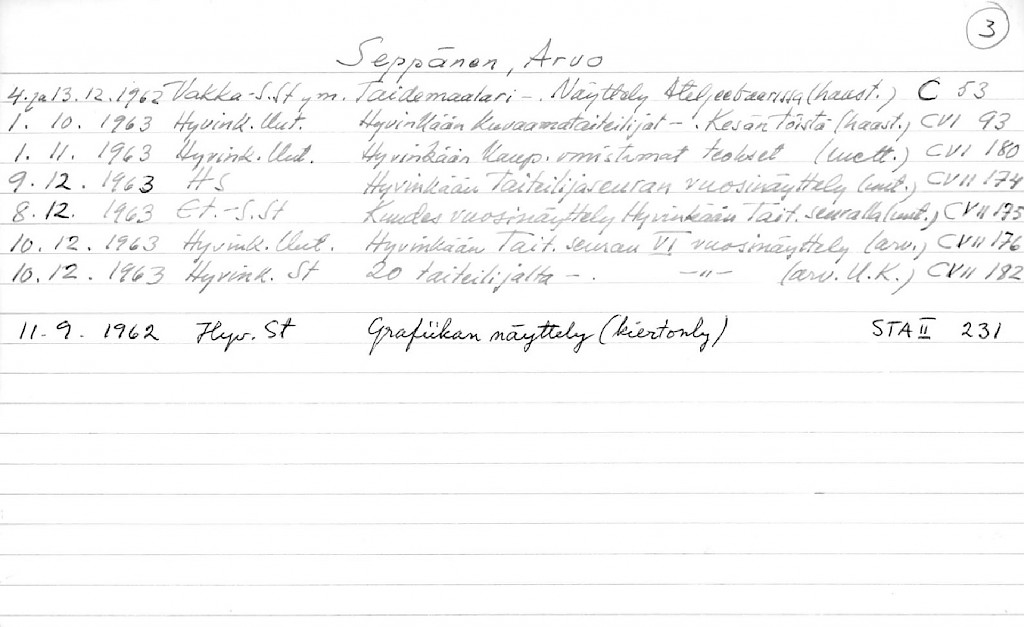 3
Seppänen, Arvo
4. ja 13.12.1962 Vakka-S.St ym. Taidemaalari -. Näyttely Ateljeebaarissa (haast.) C 53
1. 10. 1963 Hyvink. Uut. Hyvinkään Kuvaamataiteilijat -. Kesän töistä (haast.) CVI 93
1. 11. 1963 Hyvink. Uut. Hyvinkään Kaup. omistamat teokset (luett.) CVI 180
9. 12. 1963 HS Hyvinkään Taiteilijaseuran vuosinäyttely (uut.) CVII 174
8. 12. 1963 Et.-S.St Kuudes vuosinäyttely Hyvinkään Tait. seuralla (uut.) CVII 175
10. 12. 1963 Hyvink. Uut. Hyvinkään Tait. seuran VI vuosinäyttely (arv.) CVII 176
10. 12. 1963 Hyvink. St 20 taiteilijalta -. -"- (arv. U.K.) CVII 182
11. 9. 1962 Hyv. St Grafiikan näyttely (kiertonly) STA II 231